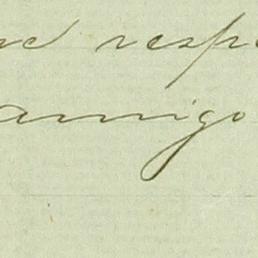 ne resp
amigo